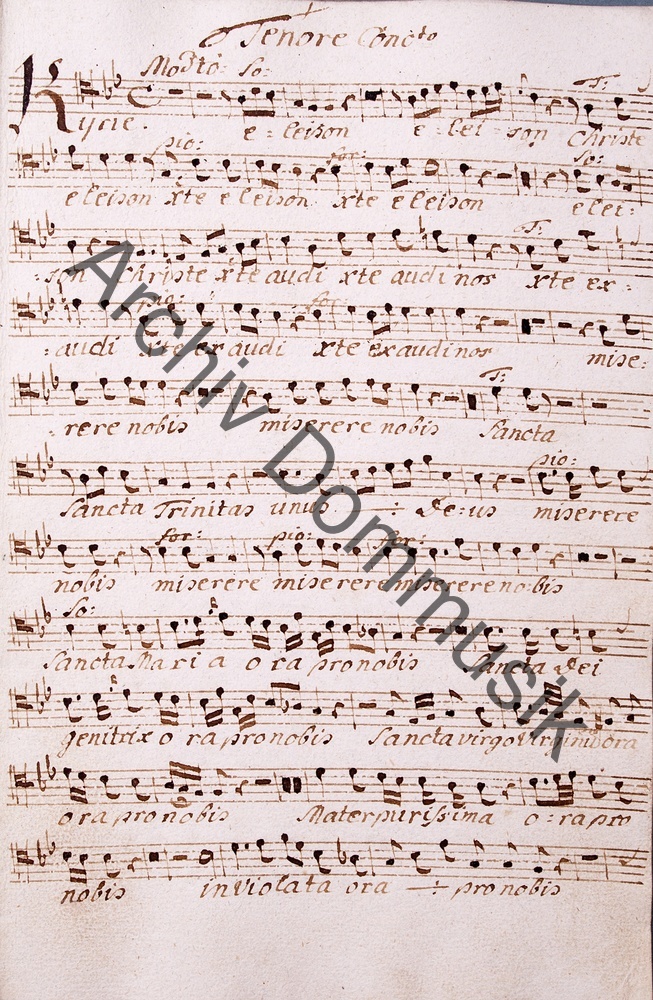 Tenore Conc:to
Mod:to So:
T:
Kyrie. e = leison e = lei = son Christe
pio: for: So:
eleison xte eleison xte eleison elei:
T:
: son Christe xte audi xte audi nos xte ex =
pio: for:
: audi xte exaudi xte exaudi nos mise:
T:
: rere nobis miserere nobis Sancta
pio:
Sancta Trinitas unus ÷ De:us miserere
for: pio: for:
nobis miserere miserere miserere nobis
So:
Sancta Maria ora pro nobis Sancta Dei
genitrix ora pro nobis Sancta virgo Virginū ora
ora pro nobis Mater purissima o:ra pro
nobis inviolata ora ÷ pro nobis
Archiv Dommusik